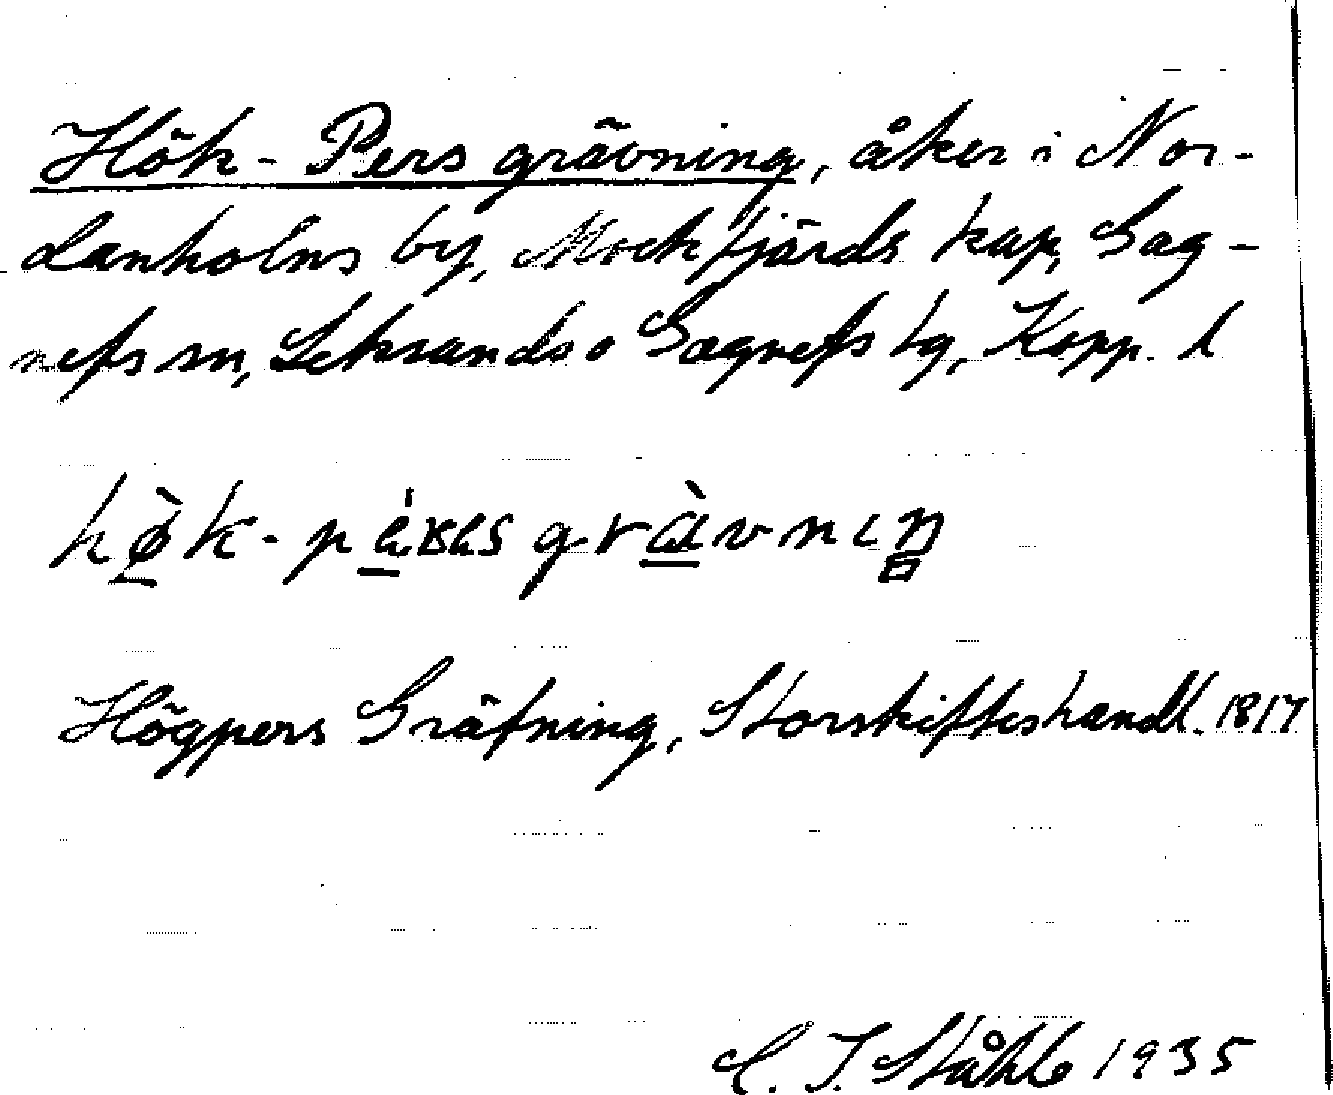 Hök-Pers grävning, åker i Nor-
danholns by, Mockfjärds kap, Gag-
nefs sn, Leksands o Gagnefs tg, Kopp. l
Högpers Gräfning, Storskifteshandl. 1817
C. I. Ståhle 1935